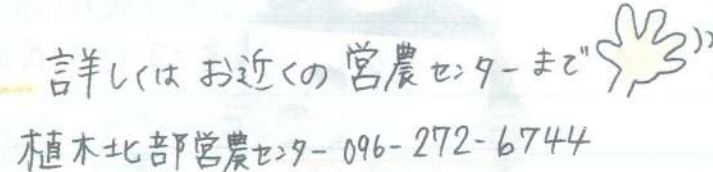 詳しくは お近くの 営農センターまで
植木北部営農センター 096-272-6744